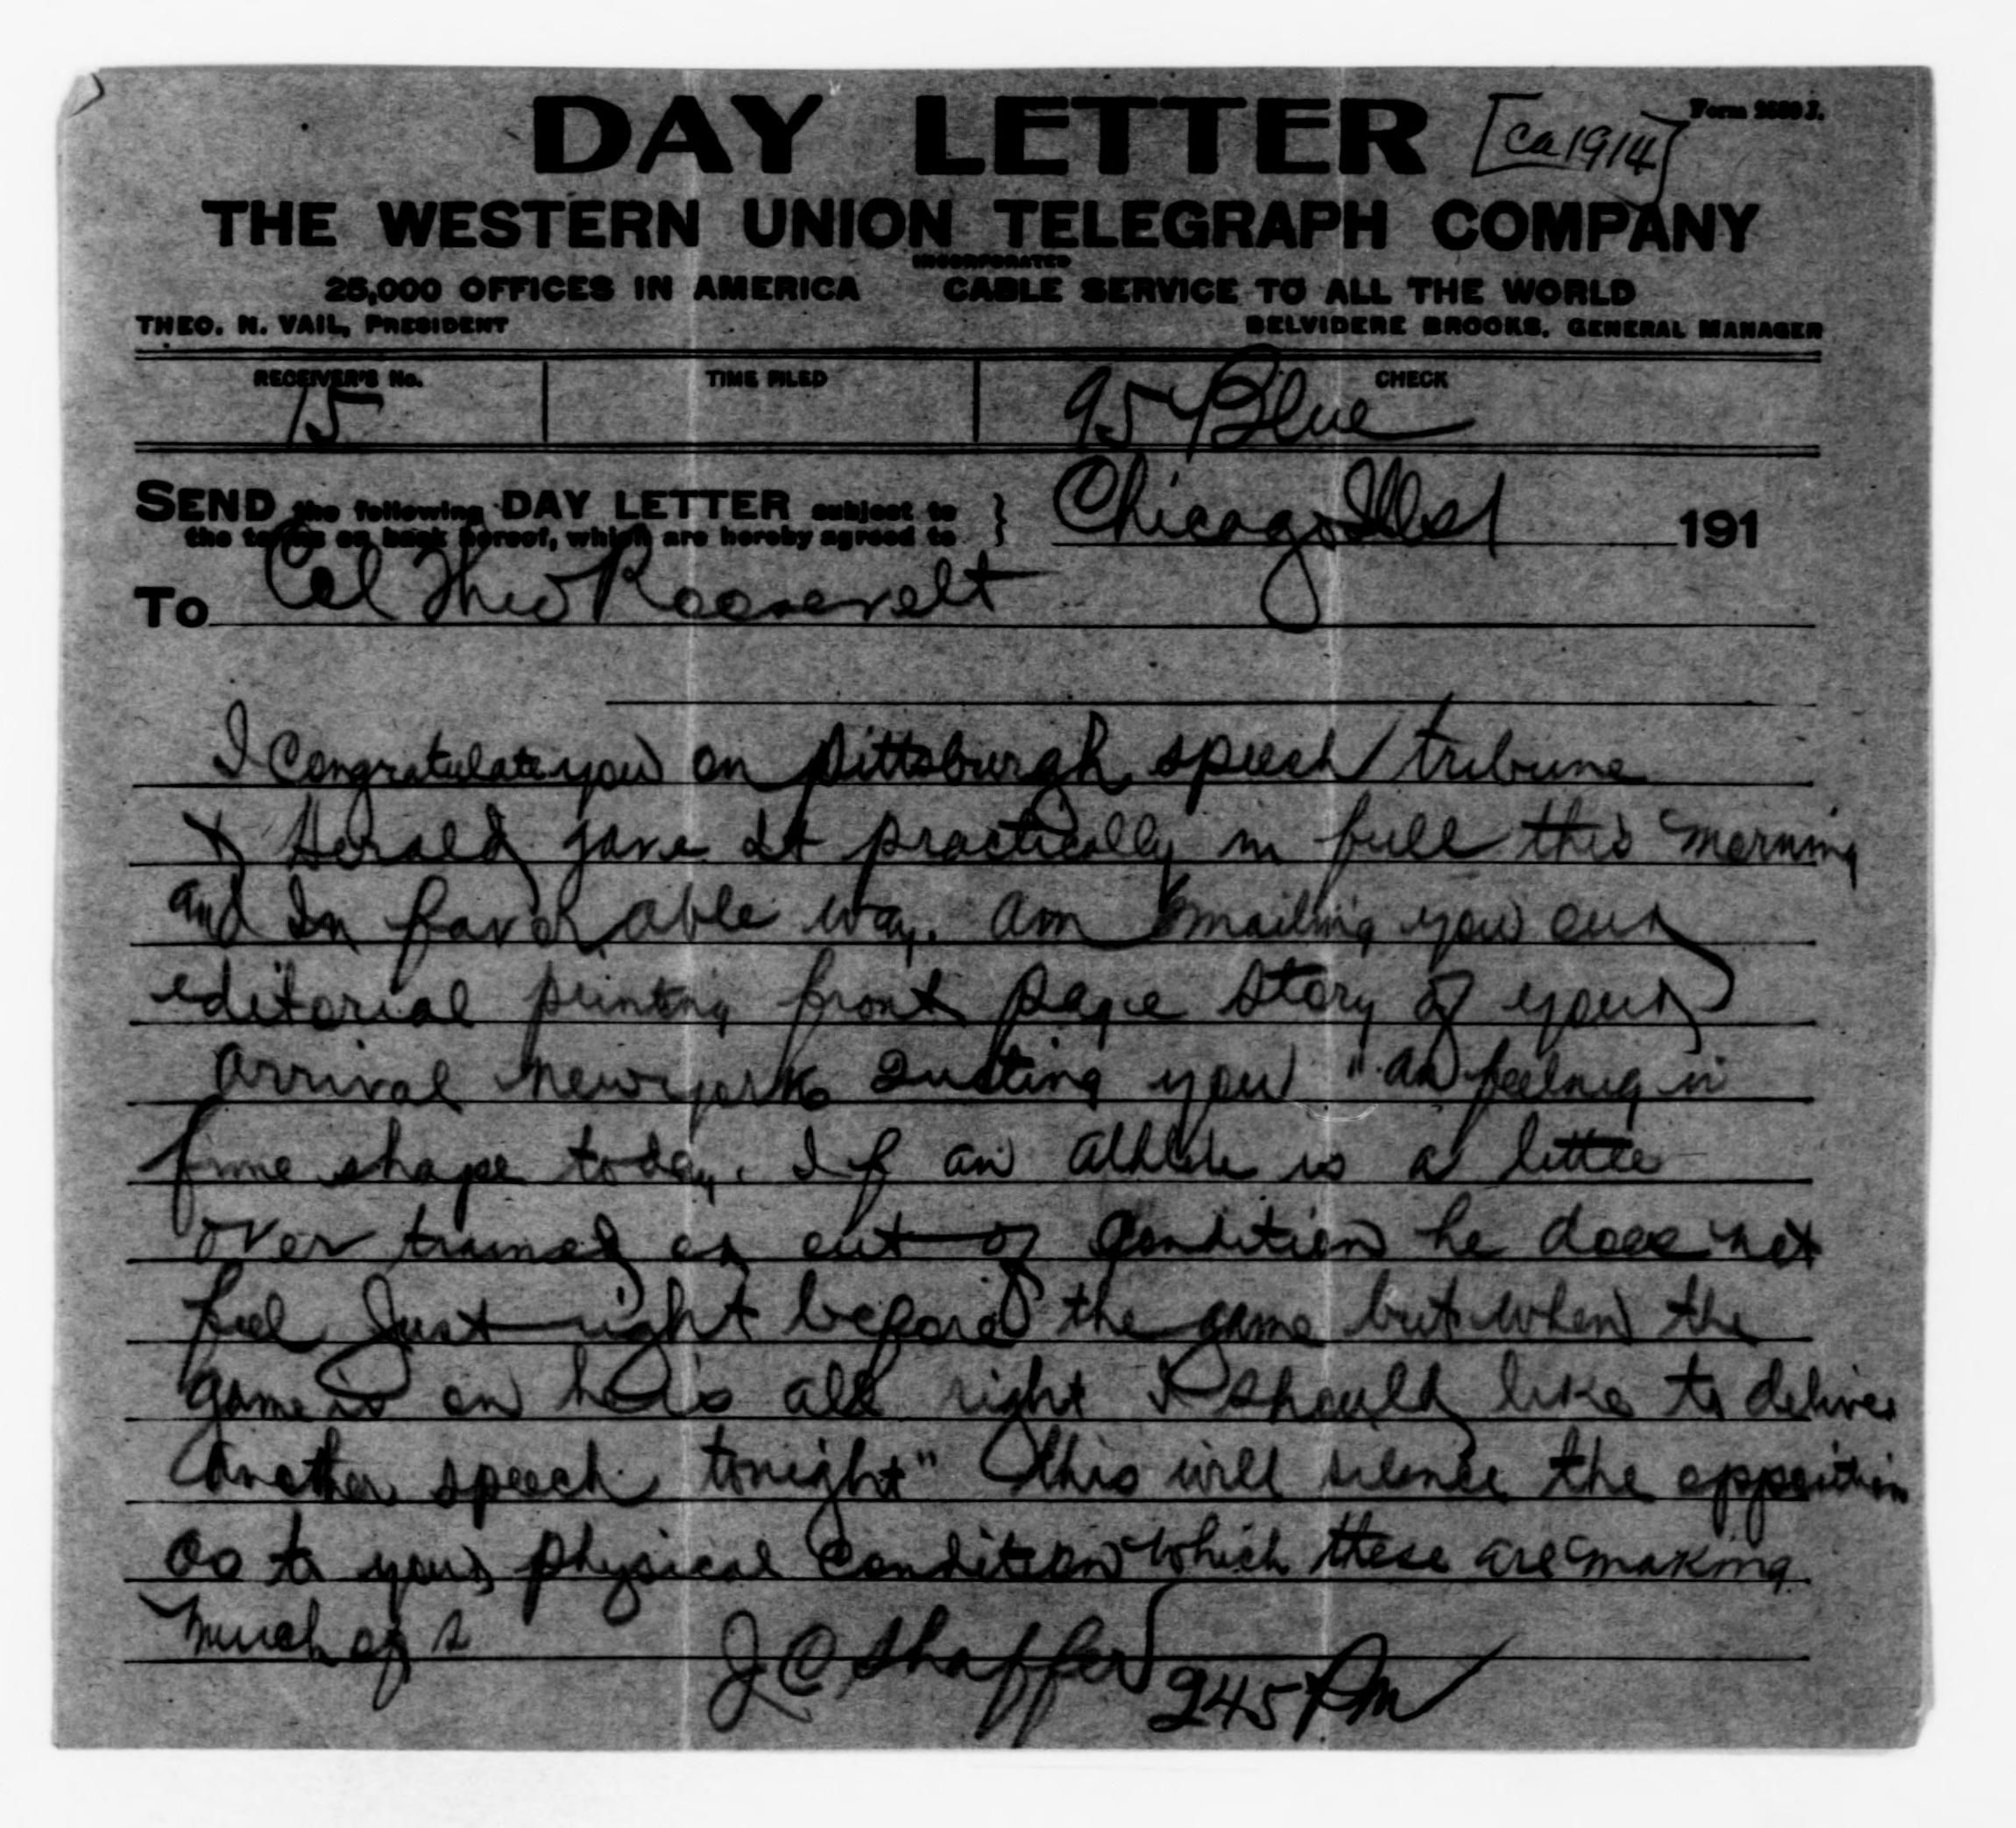 DAY LETTER [ca 1914]
Form 2689 J.
THE WESTERN UNION TELEGRAPH COMPANY
INCORPORATED
25,000 OFFICES IN AMERICA CABLE SERVICE TO ALL THE WORLD
THEO. N. VAIL, PRESIDENT BELVIDERE BROOKS, GENERAL MANAGER
RECEIVER'S No. TIME FILED CHECK
15 95 Blue
SEND the following DAY LETTER subject to
the terms on back hereof, which are hereby agreed to } Chicago Ills 1 191
To Col Theo Roosevelt
I congratulate you on pittsburgh speech / tribune
& Herald gave It practically in full this morning
and In favorable way. am mailing you our
editorial printing front page story of your
arrival newyork quoting you " am feeling in
fine shape today. If an athlete is a little
over trained or out of condition he does not
feel Just right before the game but when the
game is on he is all right I should like to deliver
another speech tonight" this will silence the opposition
as to your physical condition which these are making
much of
J C Shaffer 245 Pm